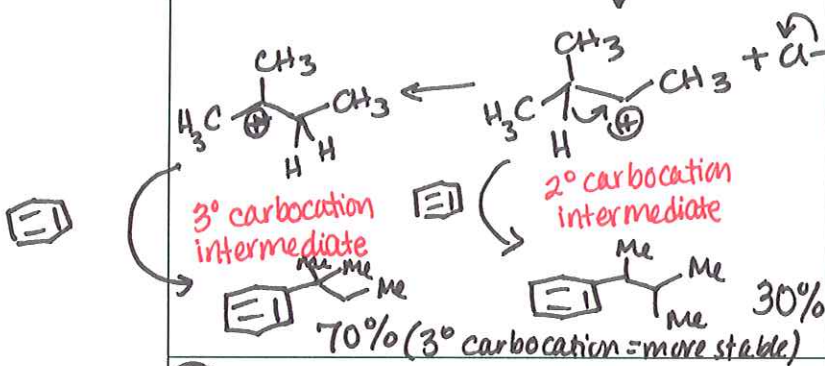 CH3
CH3
+ Cl-
H3C
⊕
CH3
H3C
⊕
CH3
H H
H
3° carbocation
intermediate
2° carbocation
intermediate
Me Me
Me
Me
Me
Me
30%
70% (3° carbocation = more stable)